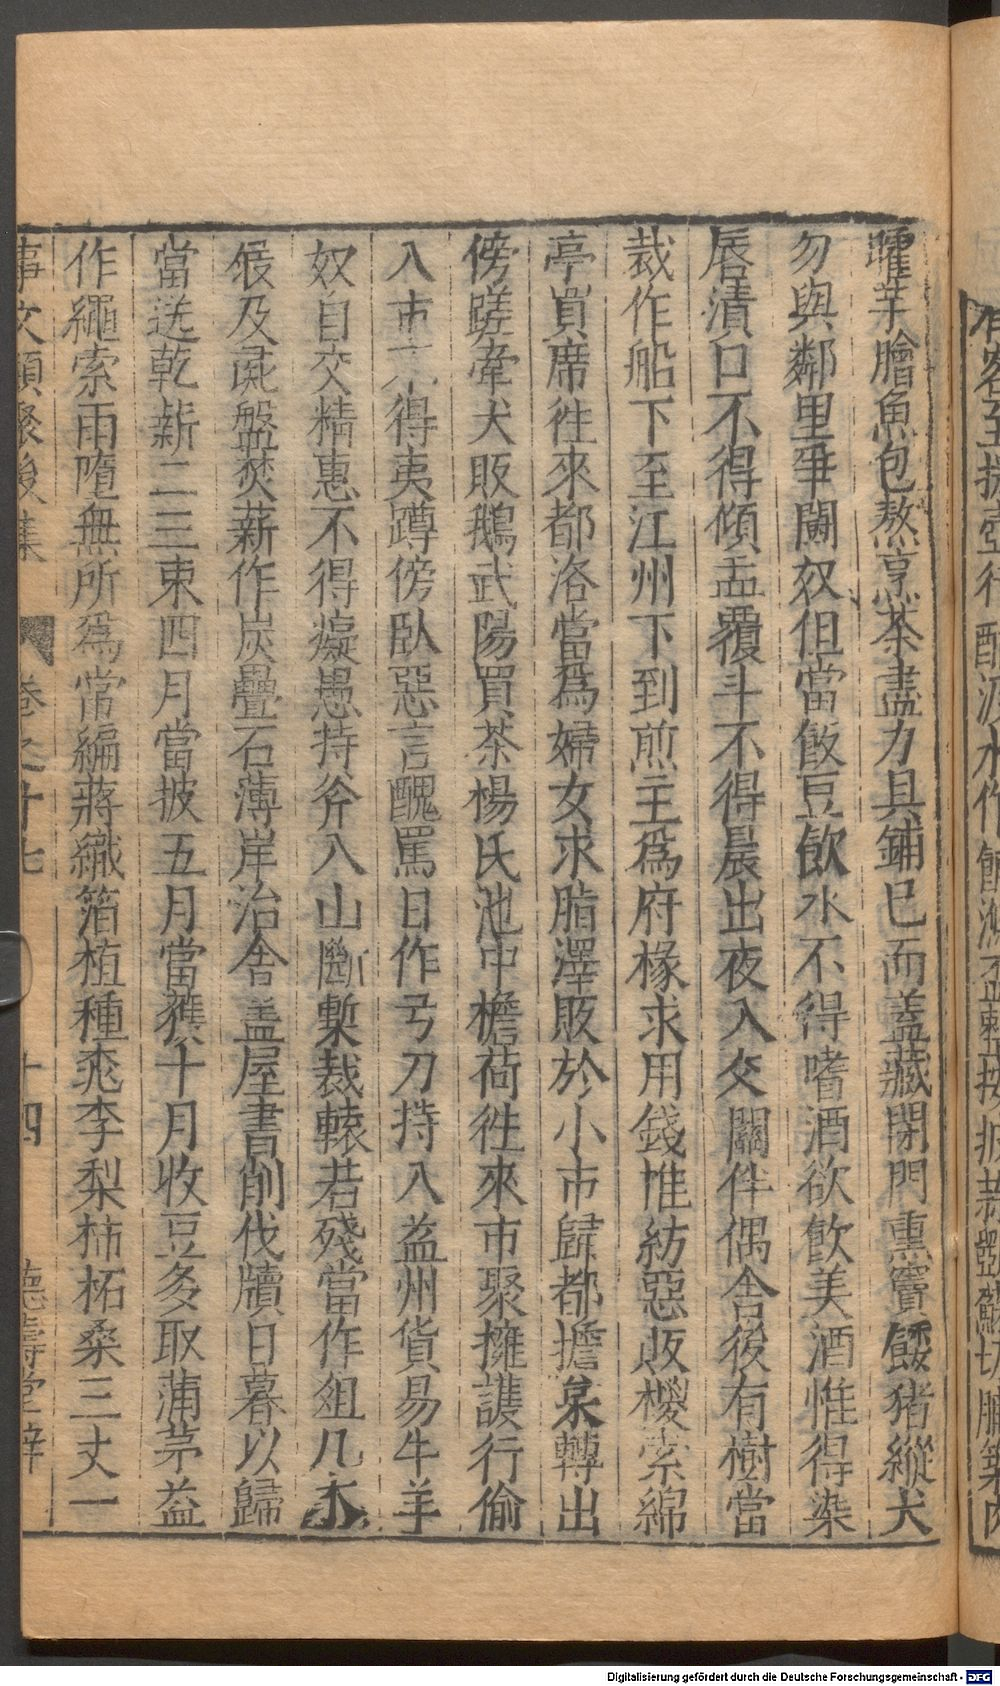 臛芋膾魚包熬烹茶盡力具鋪已而蓋藏閉門熏竇餧猪縱犬
勿與鄰里爭鬭奴但當飯豆飲水不得嗜酒欲飲美酒惟得染
唇漬口不得傾盂覆斗不得晨出夜入交關伴偶舍後有樹當
裁作船下至江州下到煎主爲府椽求用錢惟紡惡敗椶索綿
亭買席徃來都洛當爲婦女求脂澤販於小市歸都擔枲轉出
傍蹉牽犬販鵝武陽買茶楊氏池中檐荷徃來市聚擁護行偷
入市不得夷蹲傍臥惡言醜罵日作弓刀持入益州貨易牛羊
奴自交精惠不得癡愚持斧入山斷槧裁轅若殘當作俎几木
屐及彘盤焚薪作炭疊石薄岸治舍蓋屋書削伐牘日暮以歸
當送乾薪二三束四月當披五月當穫十月收豆多取蒲茅益
作繩索雨墮無所爲當編蔣織箔植種桃李梨柿柘桑三丈一
事文類聚後集 卷之十七 十四 德壽堂梓
Digitalisierung gefördert durch die Deutsche Forschungsgemeinschaft - DFG